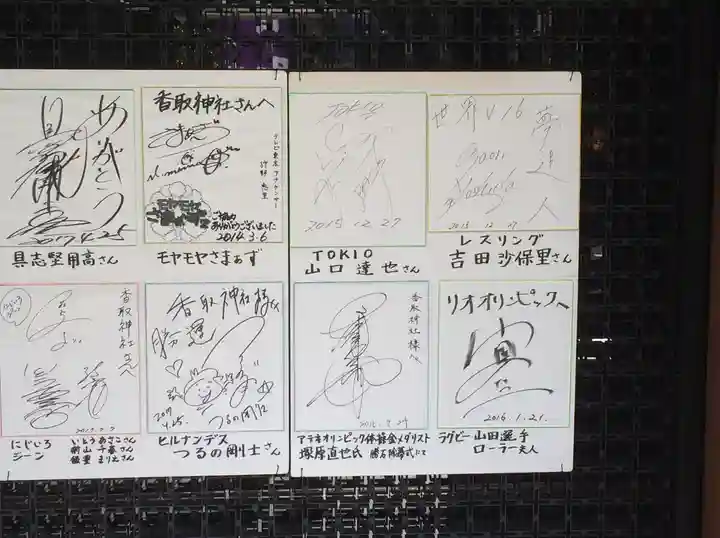 ありがとう
2017.4.25
具志堅用高さん
香取神社さんへ
テレビ東京 アナウンサー
狩野 恵里
モヤモヤ
さまぁ〜ず
ご協力
ありがとうございました
2014.3.6
モヤモヤさまぁず
TOKIO
2015 12 27
TOKIO
山口 達也さん
世界V16
夢 達人
Saori
Yoshida
レスリング
吉田 沙保里さん
香取神社さんへ
にじいろ
ジーン
いとうあさこさん
飯豊 まりえさん
香取神社様へ
勝運
2017
4.25.
つるの剛士
ヒルナンデス
つるの剛士さん
香取神社様へ
アテネオリンピック体操金メダリスト
塚原直也氏
リオオリンピックへ
2016.1.21.
ラグビー山田選手
ローラー夫人